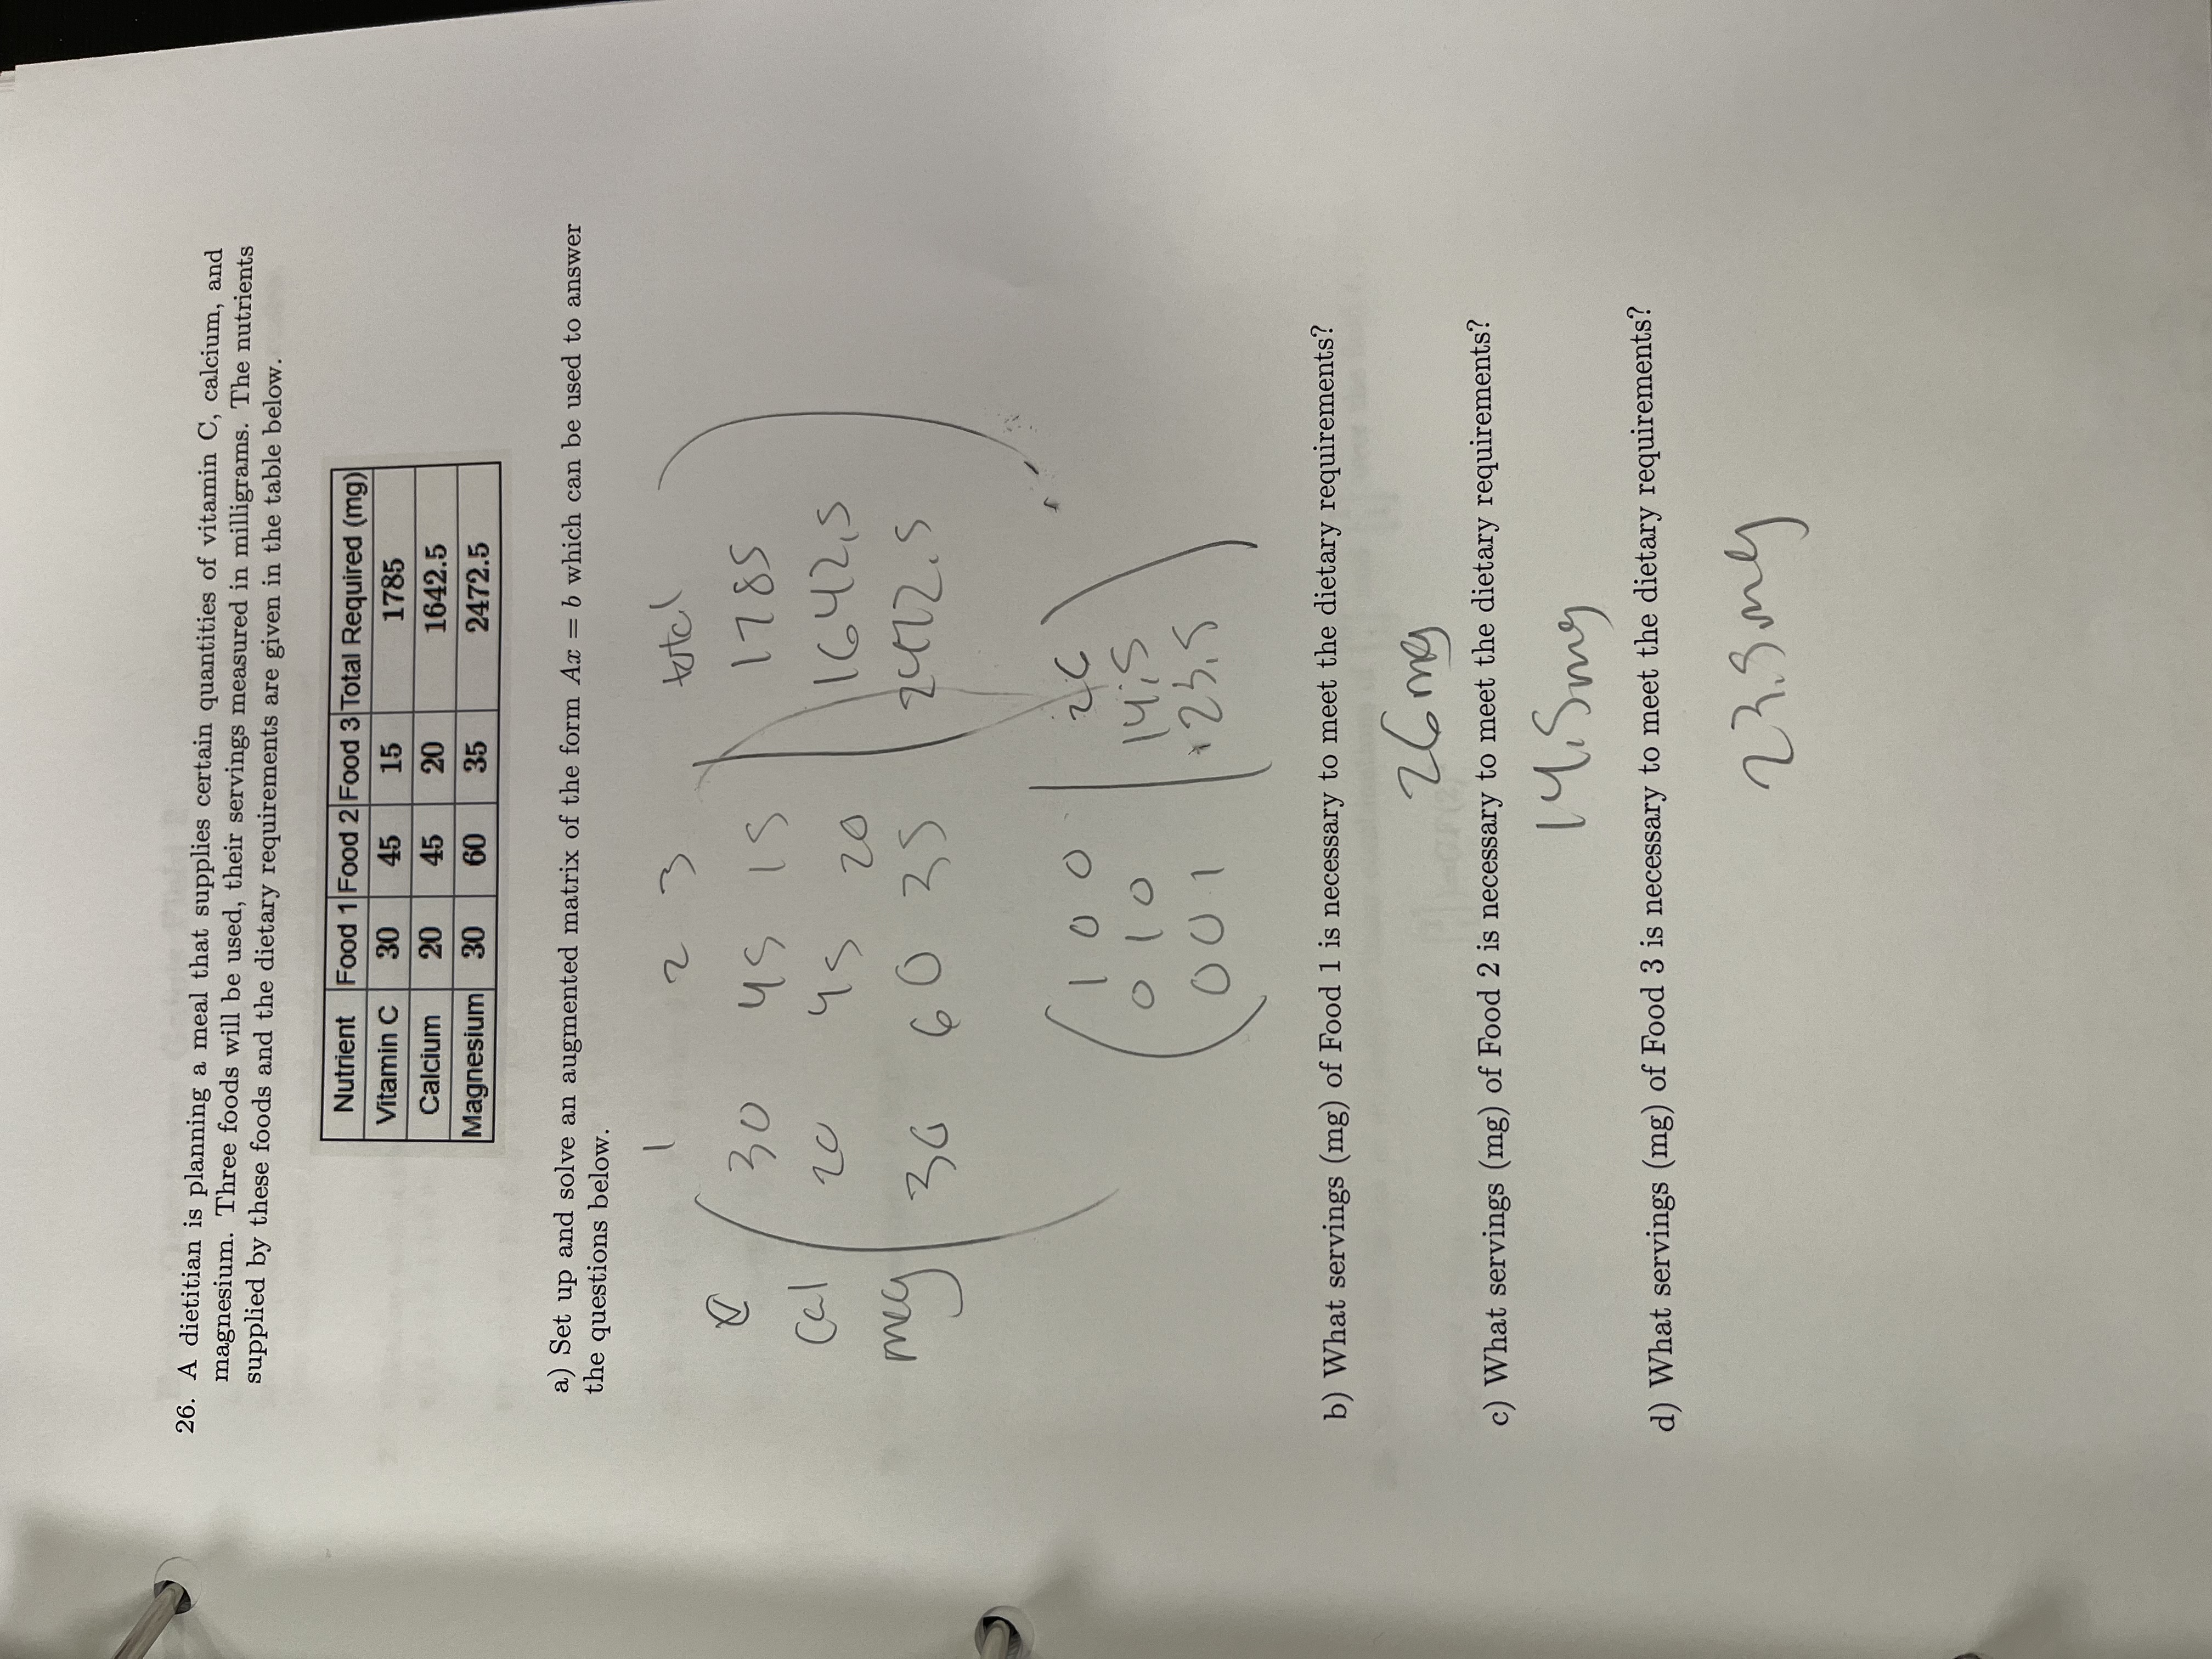 26. A dietitian is planning a meal that supplies certain quantities of vitamin C, calcium, and
magnesium. Three foods will be used, their servings measured in milligrams. The nutrients
supplied by these foods and the dietary requirements are given in the table below.
Nutrient Food 1 Food 2 Food 3 Total Required (mg)
Vitamin C 30 45 15 1785
Calcium 20 45 20 1642.5
Magnesium 30 60 35 2472.5
a) Set up and solve an augmented matrix of the form Ax = b which can be used to answer
the questions below.
1 2 3 total
C 30 45 15 1785
Cal 20 45 20 1642.5
meg 30 60 35 2472.5
1 0 0 26
0 1 0 14.5
0 0 1 23.5
b) What servings (mg) of Food 1 is necessary to meet the dietary requirements?
26mg
c) What servings (mg) of Food 2 is necessary to meet the dietary requirements?
14.5mg
d) What servings (mg) of Food 3 is necessary to meet the dietary requirements?
23.5mg